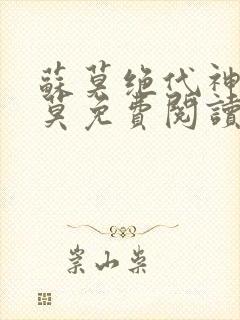 蘇莫絕代神
莫免費閱讀
崇山柴